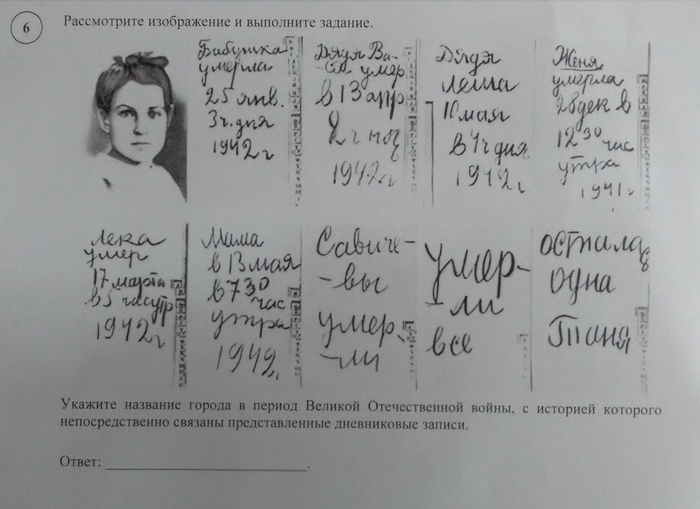 6
Рассмотрите изображение и выполните задание.
Бабушка
умерла
25 янв.
3 ч. дня
1942 г
Дядя Ва-
ся умер
в 13 апр
2 ч ноч
1942 г
Дядя
Леша
10 мая
в 4 ч дня
1942 г
Женя
умерла
28 дек в
12 30 час
утра
1941 г
Лека
умер
17 марта
в 5 час утр
1942 г
Мама
в 13 мая
в 7 30
час
утра
1942 г
Савиче-
-вы
умер-
-ли
умер-
-ли
все
осталась
одна
Таня
Укажите название города в период Великой Отечественной войны, с историей которого
непосредственно связаны представленные дневниковые записи.
Ответ: .